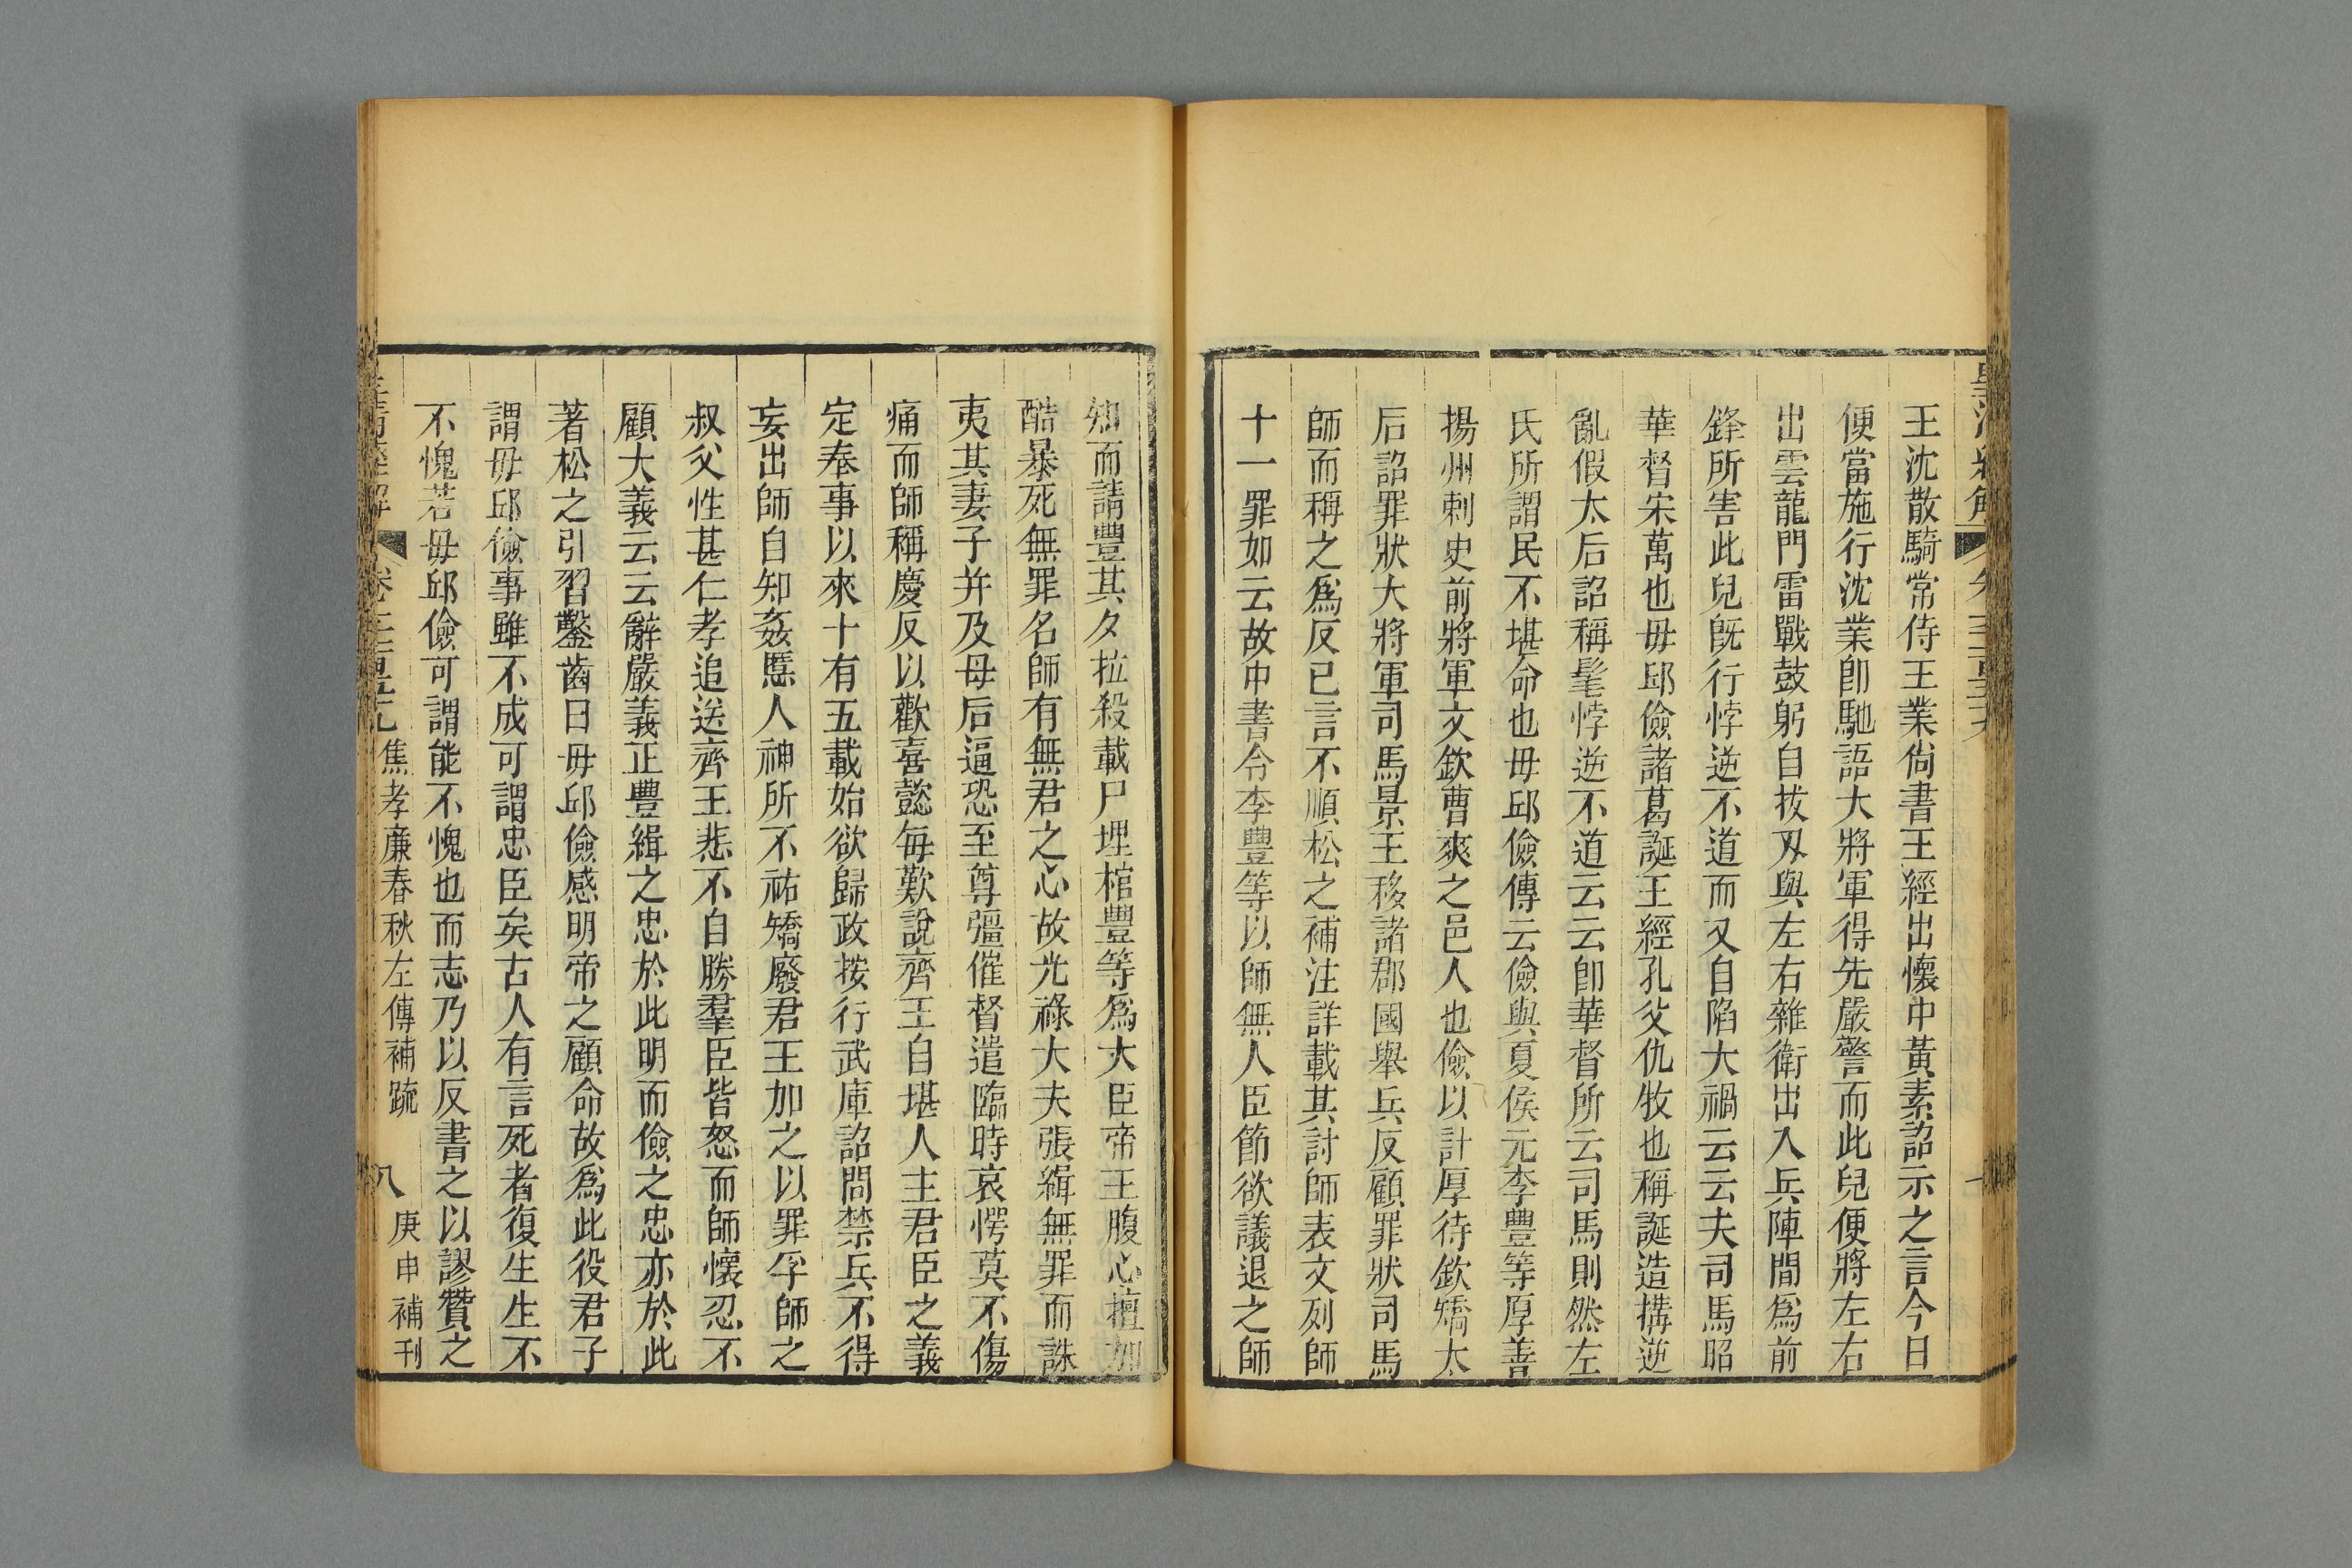 王沈散騎常侍王業尙書王經出懷中黃素詔示之言今日
便當施行沈業卽馳語大將軍得先嚴警而此兒便將左右
出雲龍門雷戰鼓躬自拔刄與左右雜衛出入兵陣間爲前
鋒所害此兒旣行悖逆不道而又自陷大禍云云夫司馬昭
華督宋萬也毋邱儉諸葛誕王經孔父仇牧也稱誕造搆逆
亂假太后詔稱髦悖逆不道云云卽華督所云司馬則然左
氏所謂民不堪命也毋邱儉傳云儉與夏侯元李豐等厚善
揚州刺史前將軍文欽曹爽之邑人也儉以計厚待欽矯太
后詔罪狀大將軍司馬景王移諸郡國舉兵反顧罪狀司馬
師而稱之爲反已言不順松之補注詳載其討師表文列師
十一罪如云故中書令李豐等以師無人臣節欲議退之師
知而請豐其夕拉殺載尸埋棺豐等爲大臣帝王腹心擅加
酷暴死無罪名師有無君之心故光祿大夫張緝無罪而誅
夷其妻子并及母后逼恐至尊彊催督遣臨時哀愕莫不傷
痛而師稱慶反以歡喜懿每歎說齊王自堪人主君臣之義
定奉事以來十有五載始欲歸政按行武庫詔問禁兵不得
妄出師自知姦慝人神所不祐矯廢君王加之以罪孚師之
叔父性甚仁孝追送齊王悲不自勝羣臣皆怒而師懷忍不
顧大義云云辭嚴義正豐緝之忠於此明而儉之忠亦於此
著松之引習鑿齒曰毋邱儉感明帝之顧命故爲此役君子
謂毋邱儉事雖不成可謂忠臣矣古人有言死者復生生不
不愧若毋邱儉可謂能不愧也而志乃以反書之以謬贊之
焦孝廉春秋左傳補疏
八
庚申補刊